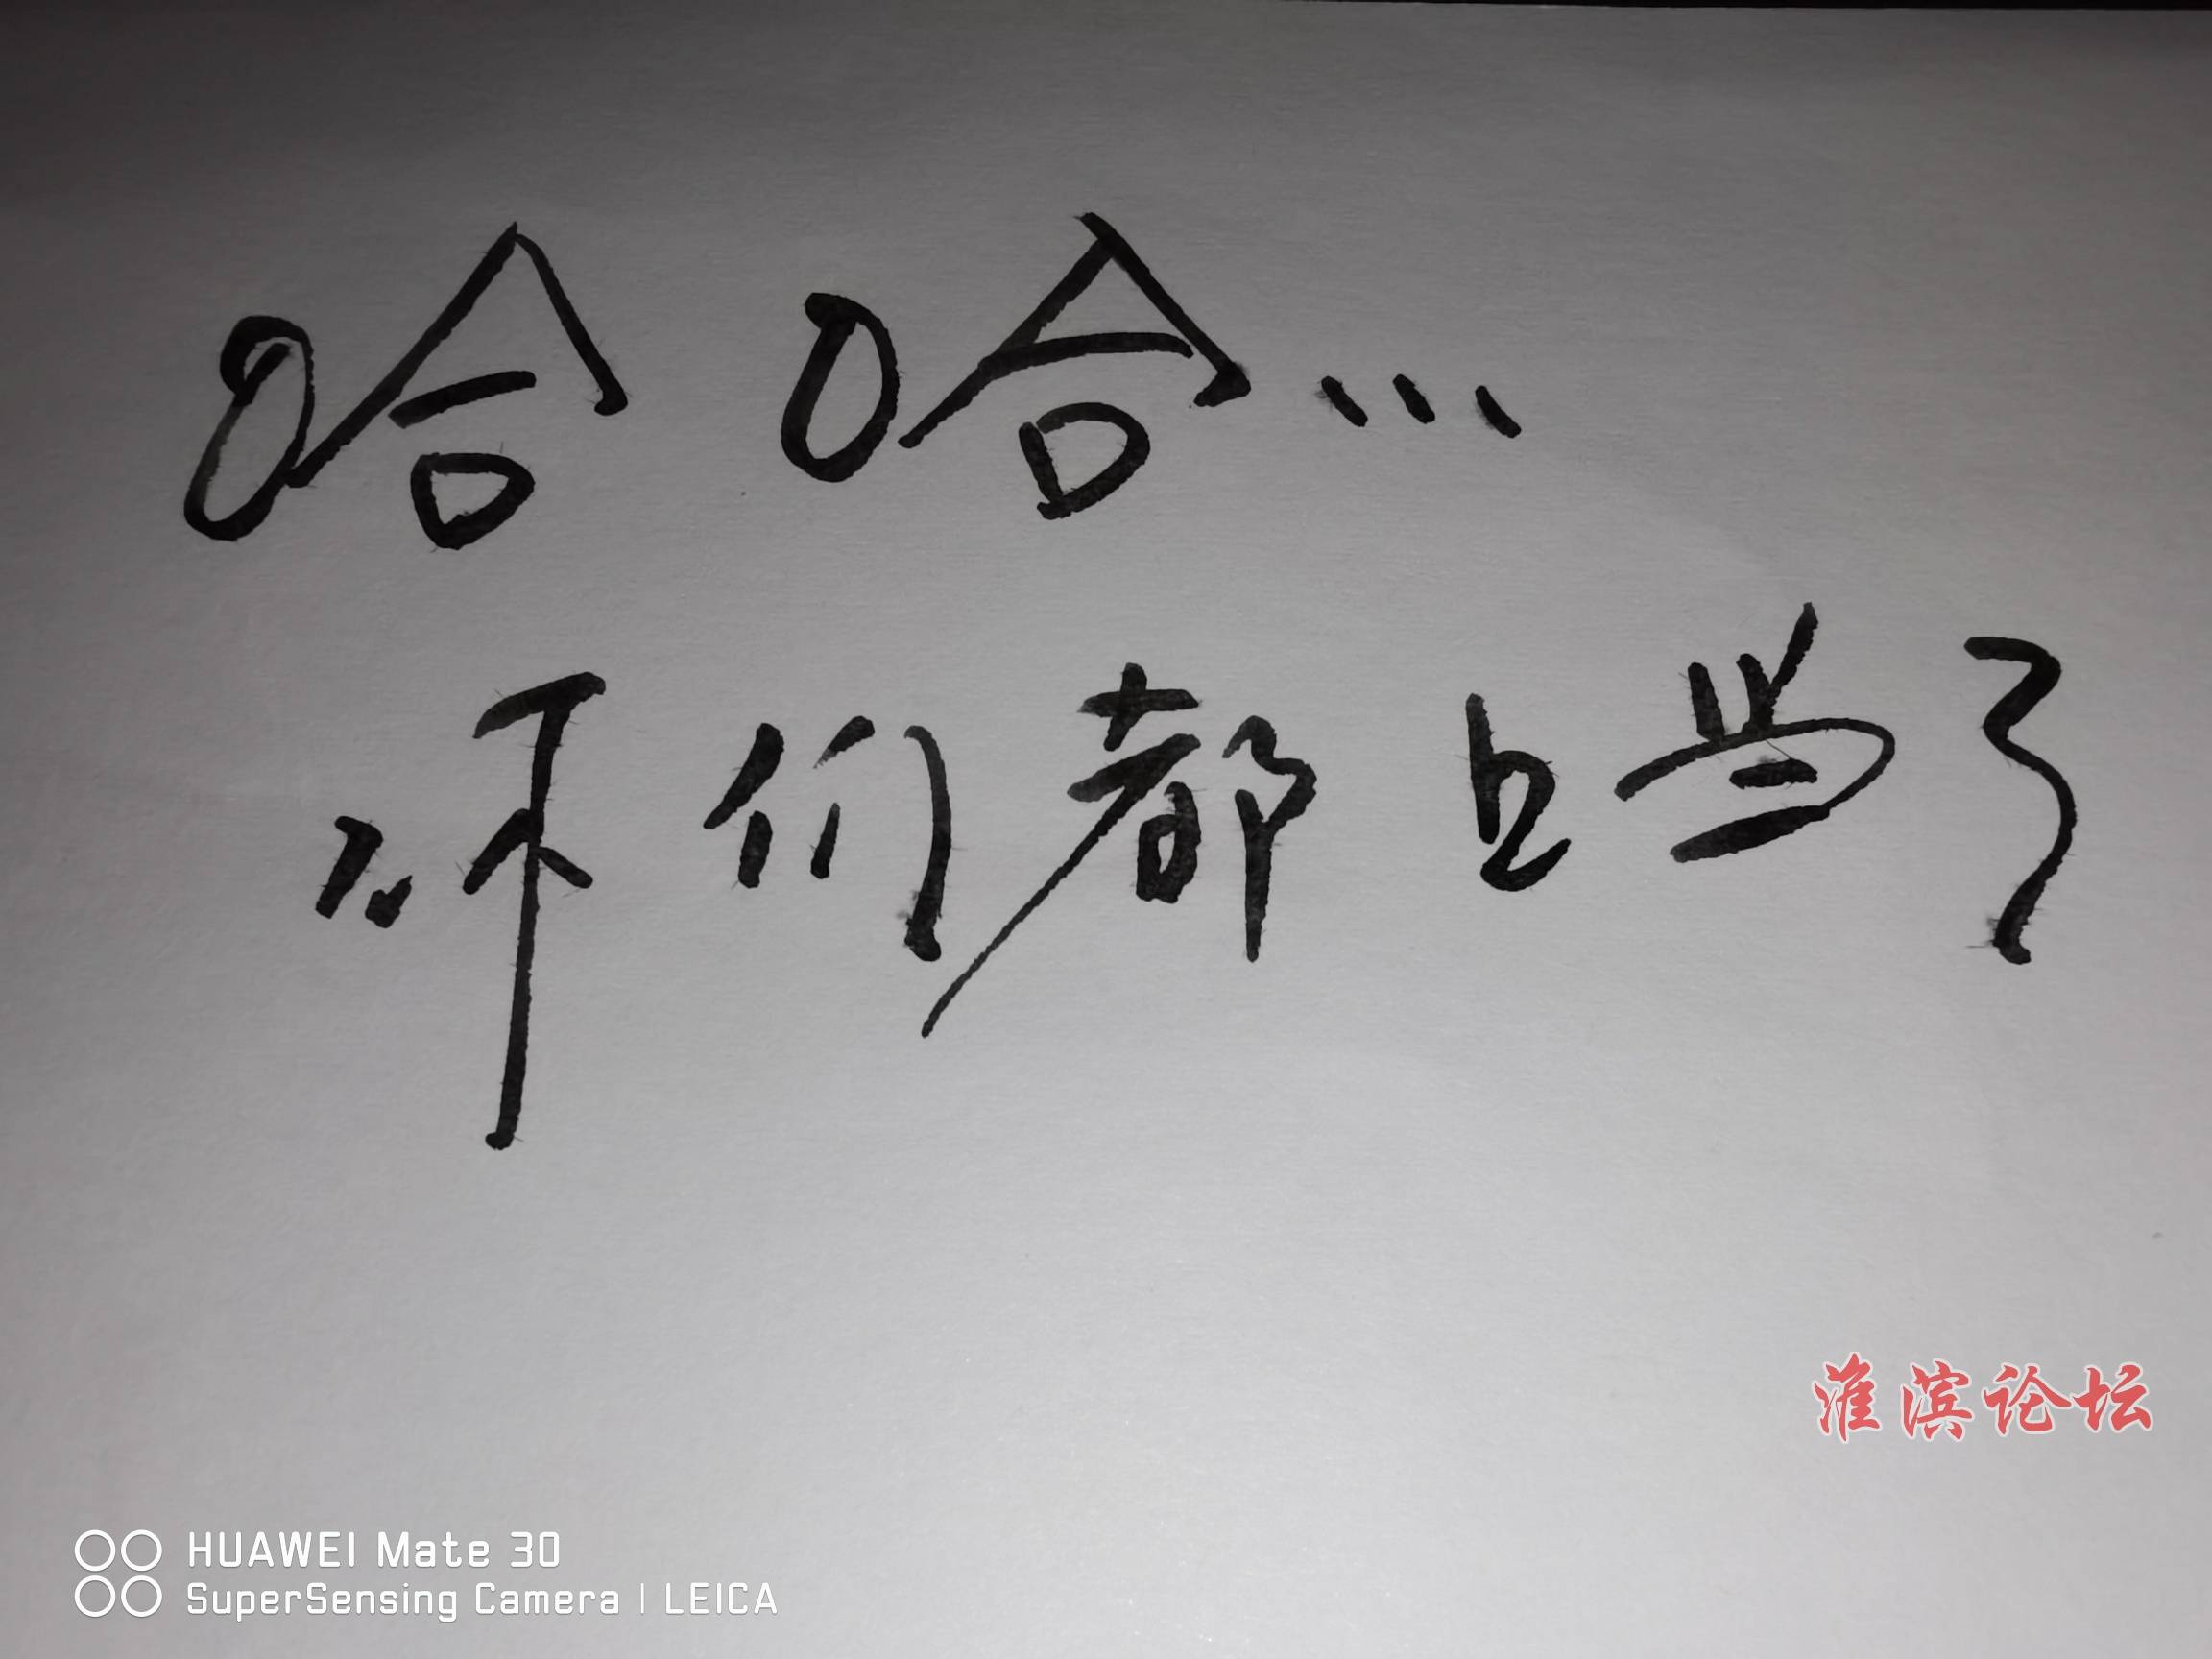 哈哈…
你们都上当了
淮滨论坛
HUAWEI Mate 30
SuperSensing Camera | LEICA